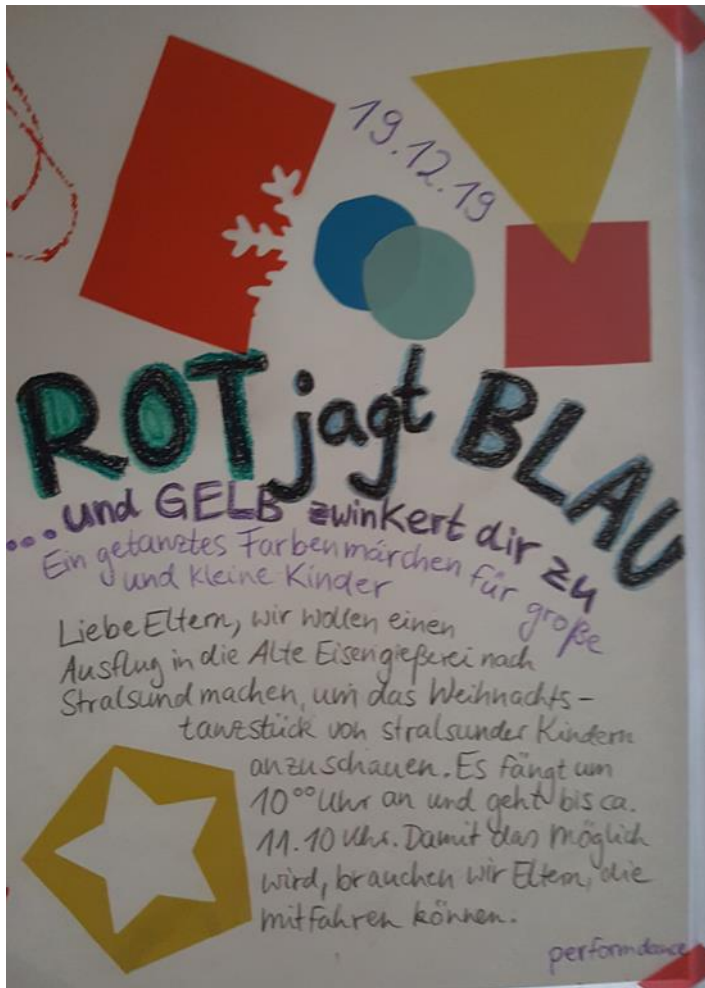 19.12.19
ROT jagt BLAU
...und GELB zwinkert dir zu
Ein getanztes Farbenmärchen für große
und kleine Kinder
Liebe Eltern, wir wollen einen
Ausflug in die Alte Eisengießerei nach
Stralsund machen, um das Weihnachts-
tanzstück von stralsunder Kindern
anzuschauen. Es fängt um
10⁰⁰ Uhr an und geht bis ca.
11.10 Uhr. Damit das möglich
wird, brauchen wir Eltern, die
mitfahren können.
performdance